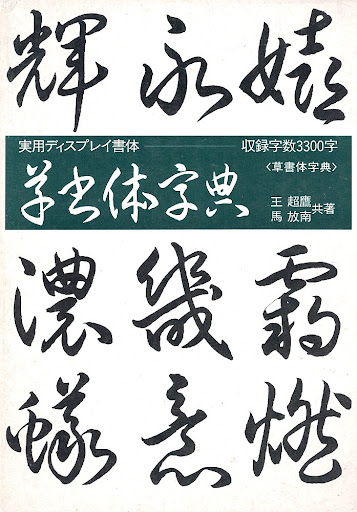 輝永嬉
実用ディスプレイ書体
収録字数3300字
草書体字典
〈草書体字典〉
王超鷹
馬放南
共著
濃幾
蟻意燃